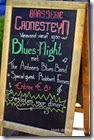 BRASSERIE
CRONESTEYN
Blues-Night
met
The Antones Blues Band
Special guest: Robbert Fossen
Entree € 8,-